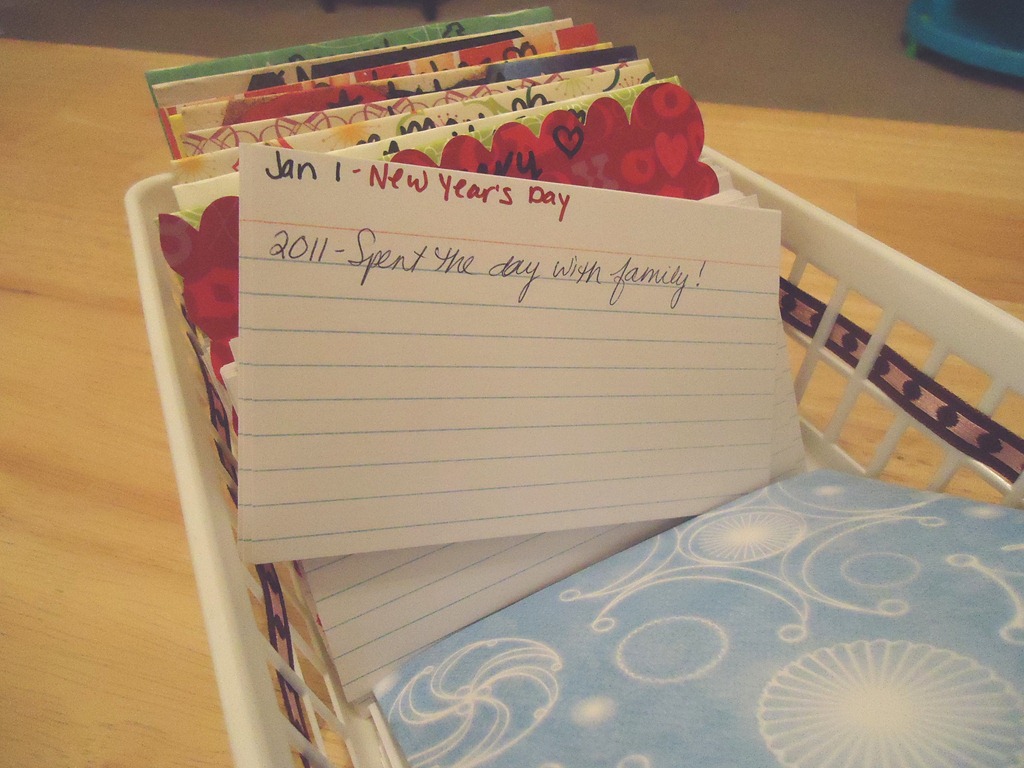 Jan 1 - New Year's Day
2011 - Spent the day with family!